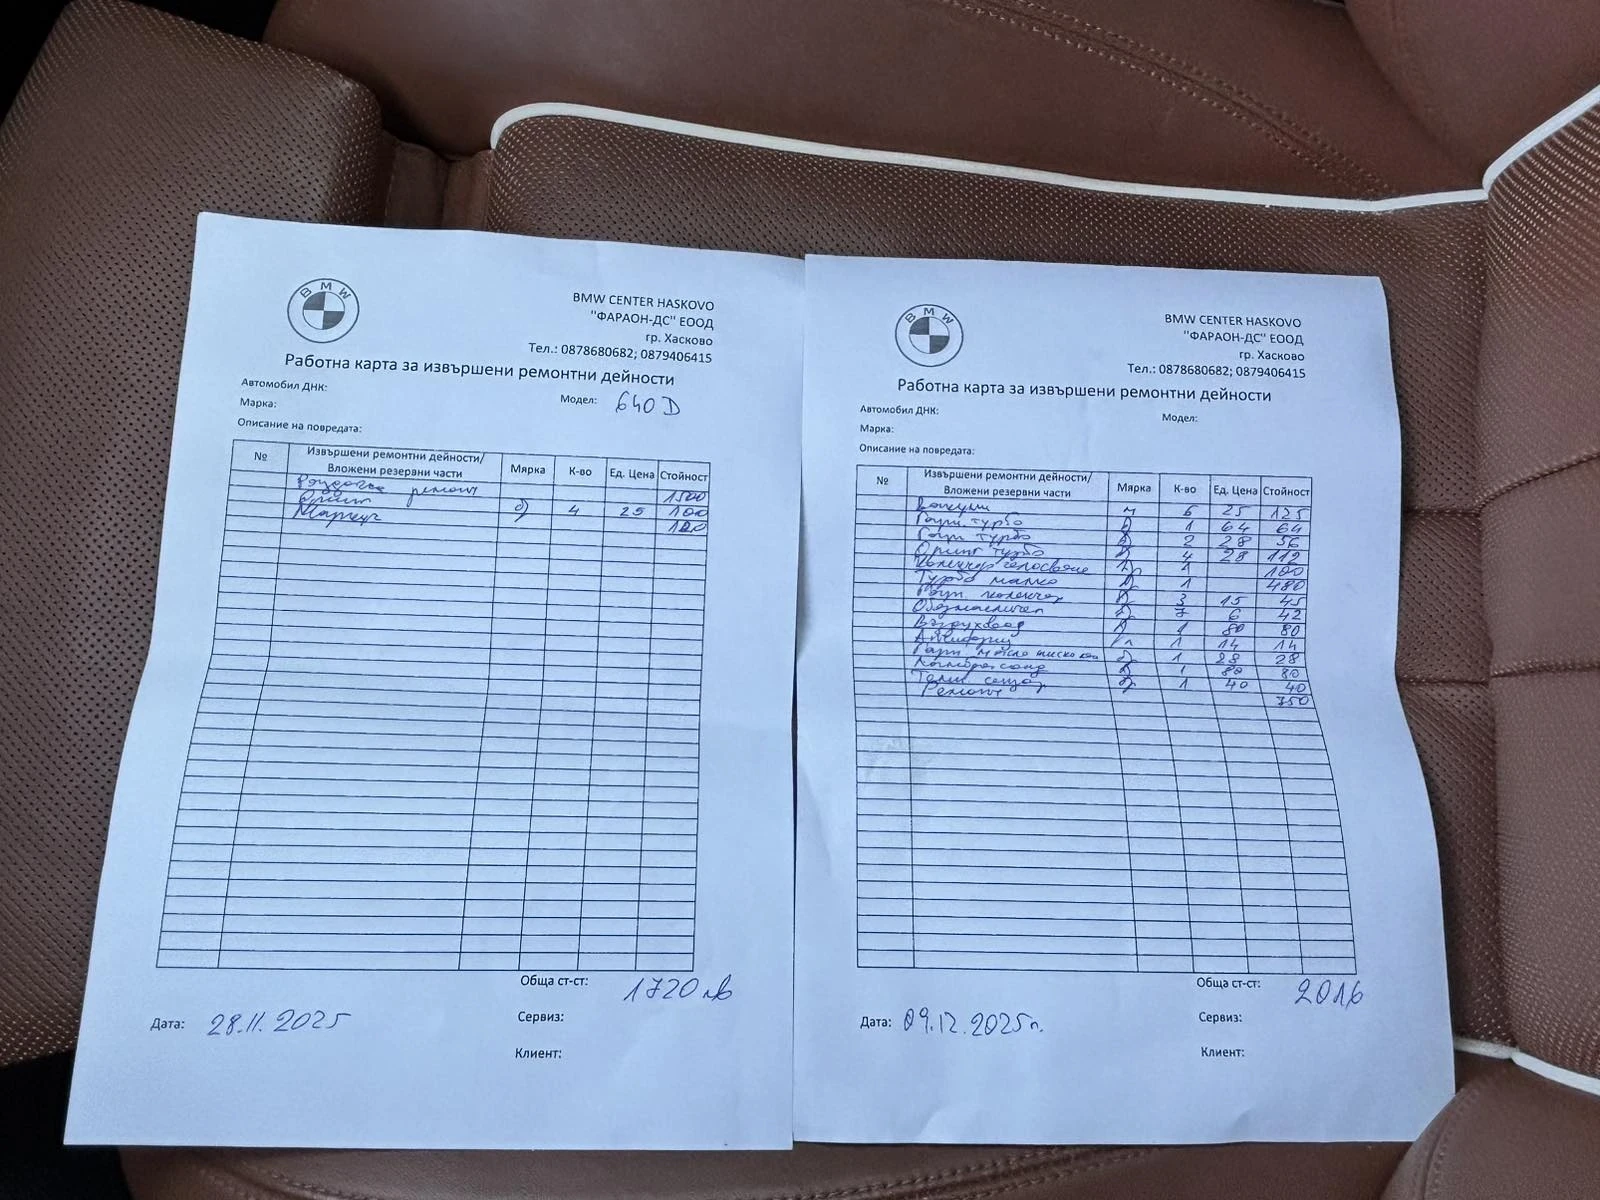 BMW
BMW CENTER HASKOVO
"ФАРАОН-ДС" ЕООД
гр. Хасково
Тел.: 0878680682; 0879406415
Работна карта за извършени ремонтни дейности
Автомобил ДНК:
Марка:
Модел: 640 D
Описание на повредата:
№ Извършени ремонтни дейности/ Вложени резервни части Мярка К-во Ед. Цена Стойност
ремонт 1500
4 25 100
Маркуч 120
Обща ст-ст: 1720 лв
Дата: 28.11.2025
Сервиз:
Клиент:
BMW
BMW CENTER HASKOVO
"ФАРАОН-ДС" ЕООД
гр. Хасково
Тел.: 0878680682; 0879406415
Работна карта за извършени ремонтни дейности
Автомобил ДНК:
Марка:
Модел:
Описание на повредата:
№ Извършени ремонтни дейности/ Вложени резервни части Мярка К-во Ед. Цена Стойност
6 25 125
Гарн. турбо 1 64 64
Гарн турбо 2 28 56
Оринг турбо 4 28 112
Колектор 1 100
Турбо малко 1 480
Гарн. колектор 3 15 45
Обезмаслител 7 6 42
Въздуховод 1 80 80
Антифриз 1 14 14
Гарн масло 1 28 28
1 80 80
1 40 40
Ремонт 750
Обща ст-ст: 2016
Дата: 09.12.2025г.
Сервиз:
Клиент: